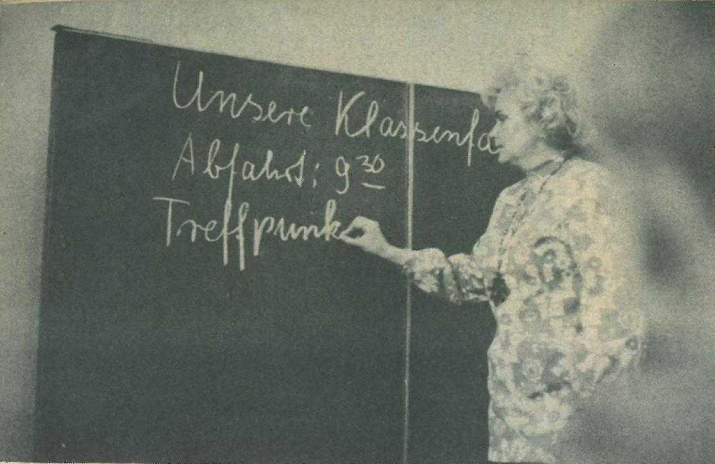 Unsere Klassenfa
Abfahrt: 9³⁰
Treffpunk